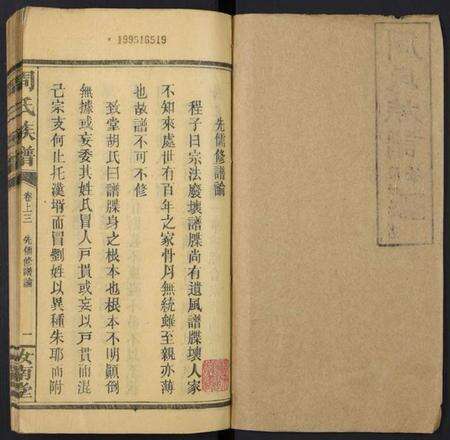 *199516519
先儒修譜論
程子曰宗法廢壞譜牒尚有遺風譜牒壞人家
不知來處世有百年之家骨肉無統雖至親亦薄
也故譜不可不修
致堂胡氏曰譜牒身之根本也根本不明顛倒
無據或妄委其姓氏冒人戸貫或妄以戸貫而混
己宗支何止托漢壻而冒劉姓以異種朱耶而附
周氏族譜
卷上三
先儒修譜論
一
汝南堂